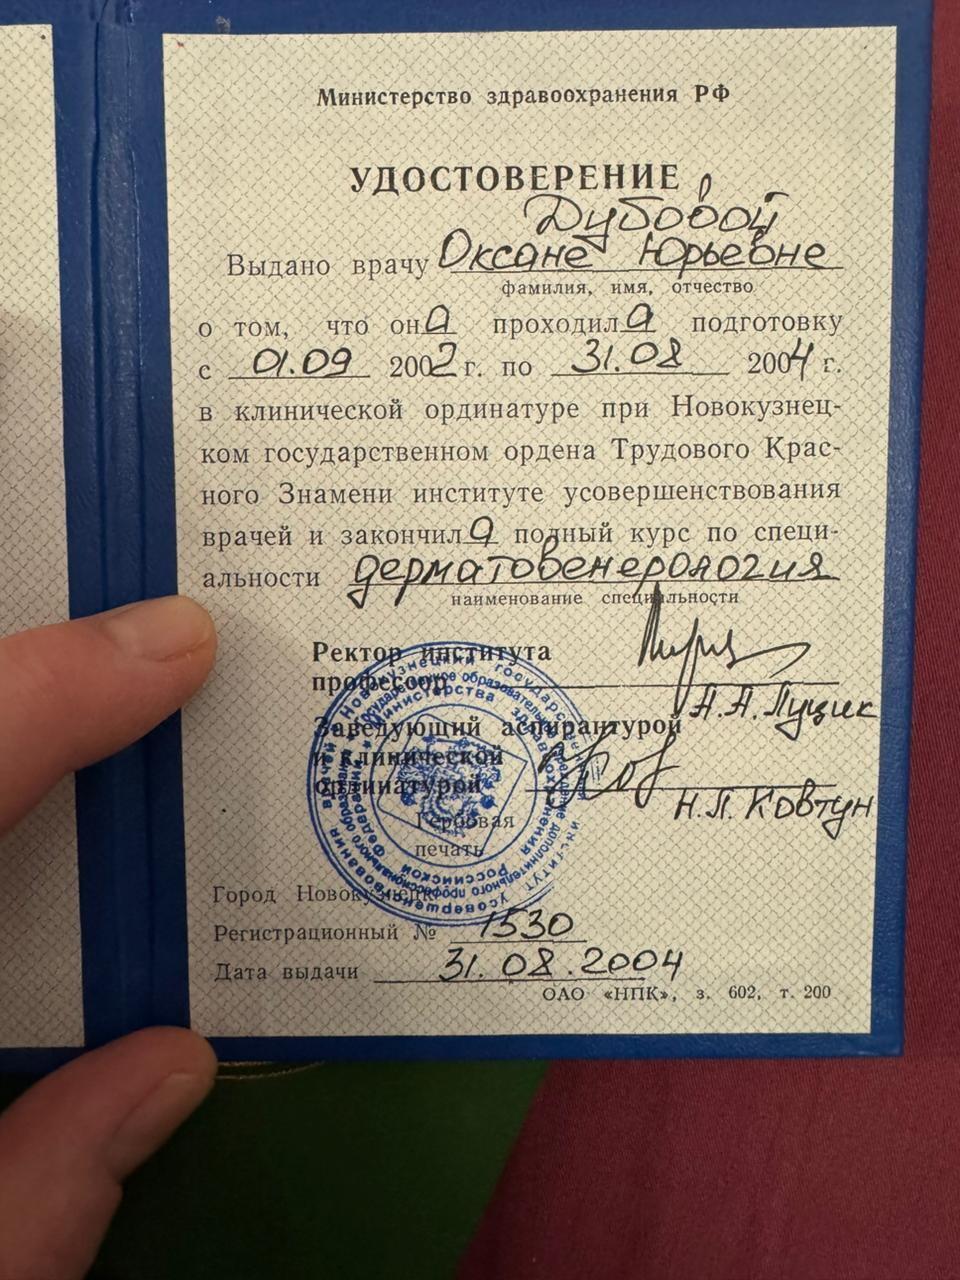 Министерство здравоохранения РФ
УДОСТОВЕРЕНИЕ
Дубовой
Выдано врачу Оксане Юрьевне
фамилия, имя, отчество
о том, что она проходила подготовку
с 01.09 2002 г. по 31.08 2004 г.
в клинической ординатуре при Новокузнец-
ком государственном ордена Трудового Крас-
ного Знамени институте усовершенствования
врачей и закончила полный курс по специ-
альности дерматовенерология
наименование специальности
Ректор института
профессор
А.А. Луцик
Заведующий аспирантурой
и клинической
ординатурой
Н.Л. Ковтун
Гербовая
печать
Город Новокузнецк
Регистрационный № 1530
Дата выдачи 31.08.2004
ОАО «НПК», з. 602, т. 200